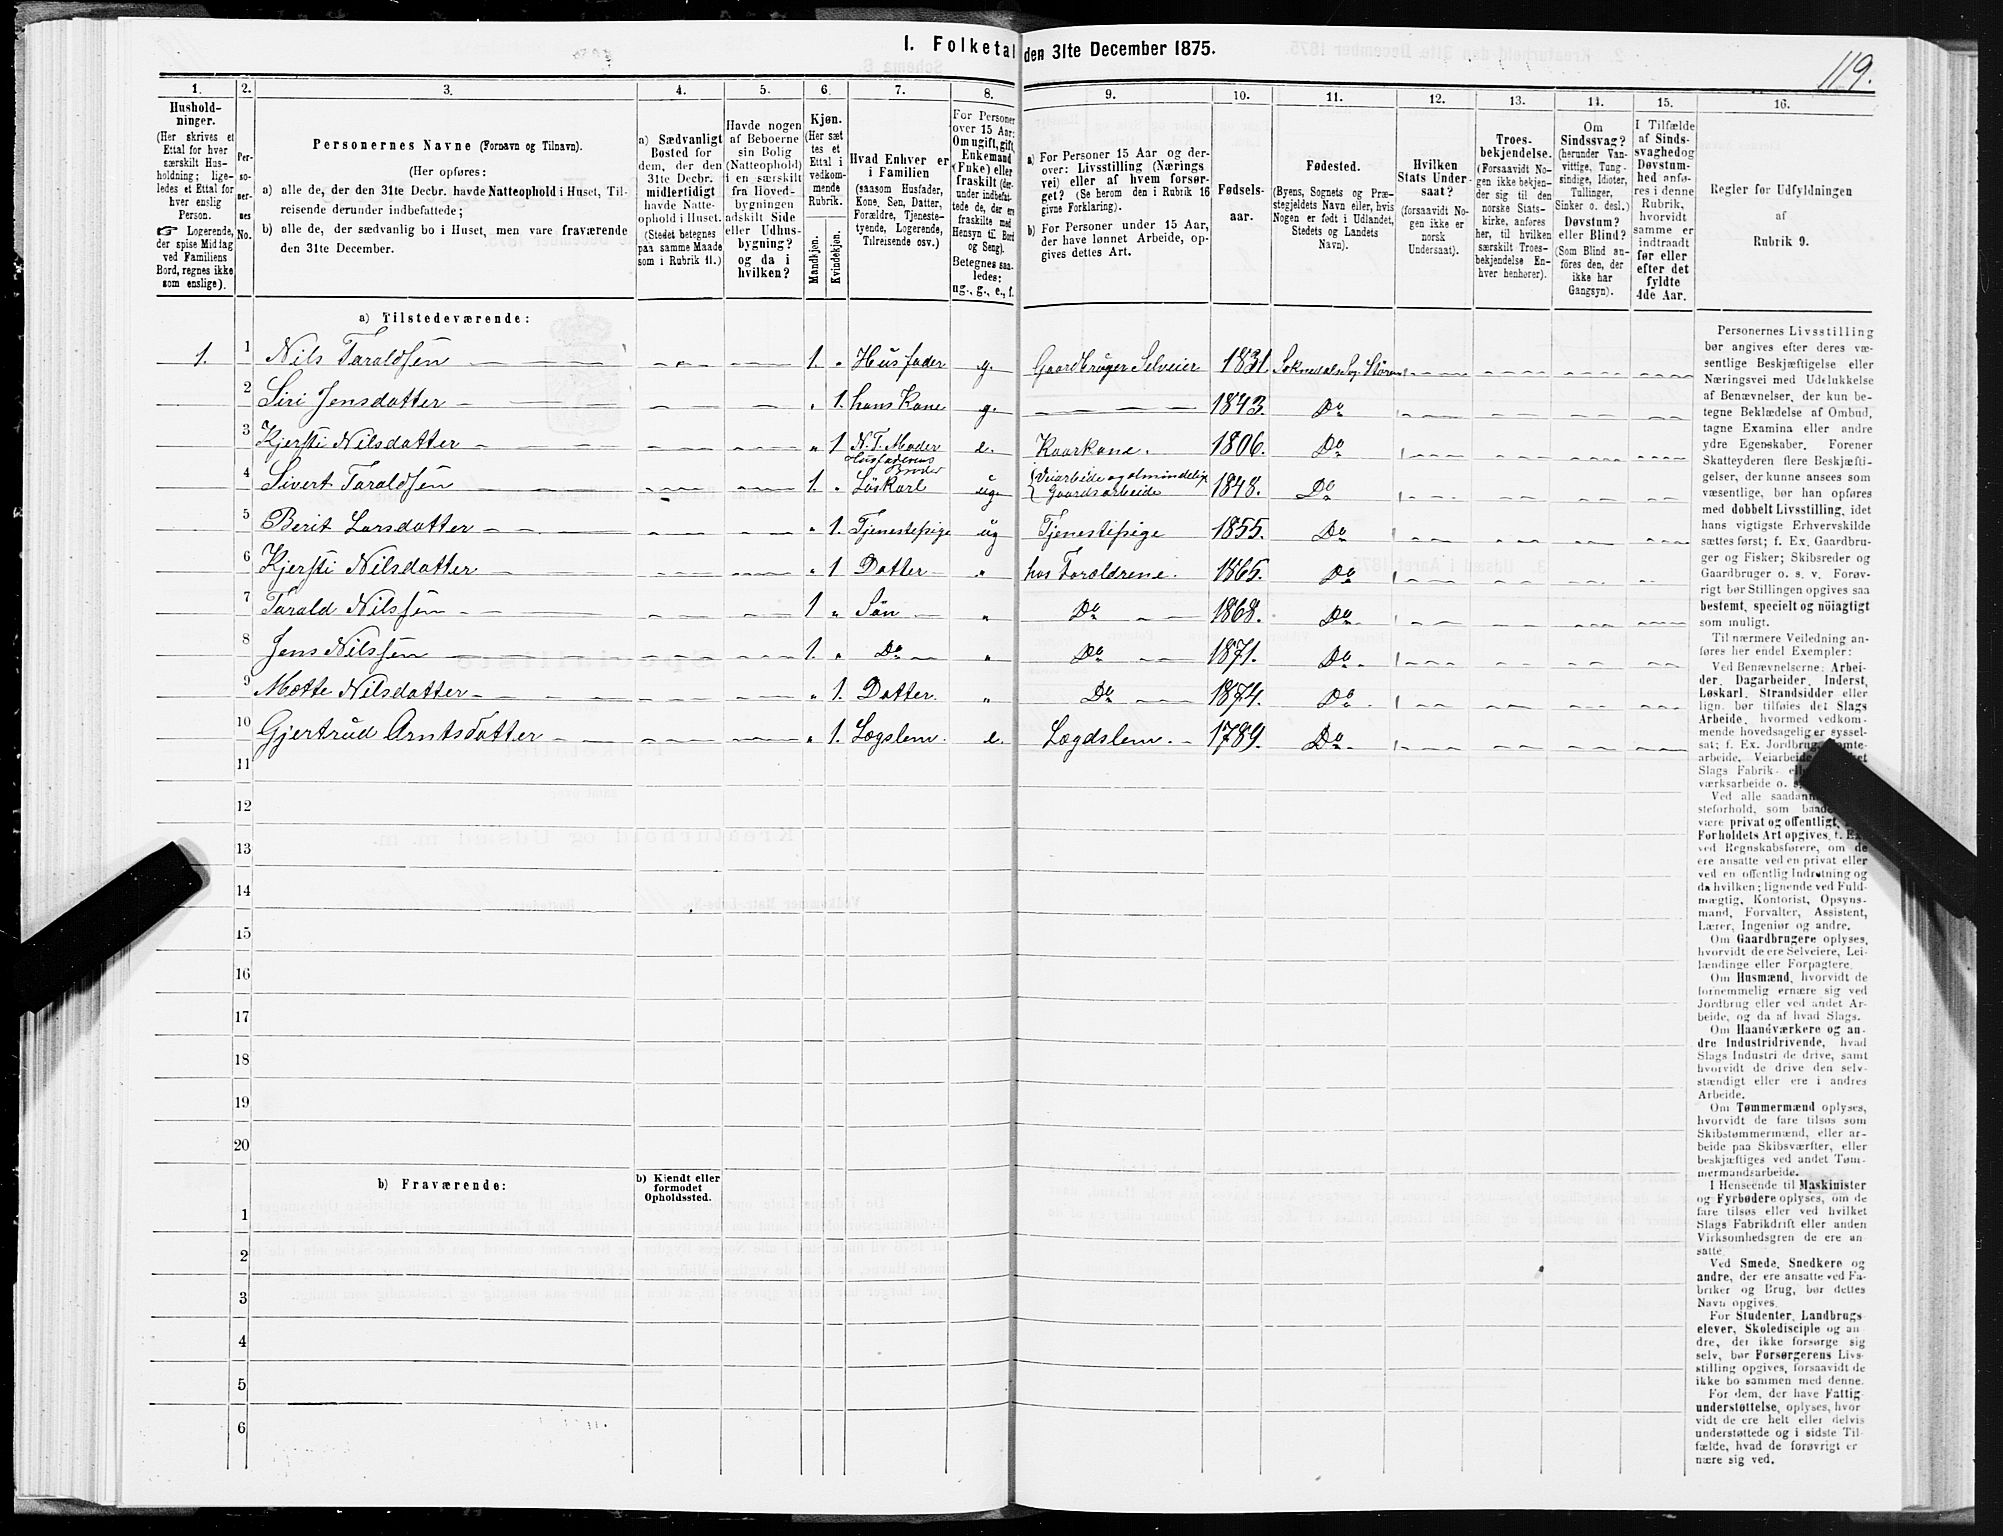 I. Folketal den 31te December 1875.
119.
1.
2.
3.
4.
5.
6.
7.
8.
9.
10.
11.
12.
13.
14.
15.
16.
Hushold-
ninger.
(Her skrives et
Ettal for hver
særskilt Hus-
holdning; lige-
ledes et Ettal for
hver enslig
Person.
☞ Logerende,
der spise Middag
ved Familiens
Bord, regnes ikke
som enslige).
Per-
so-
ner-
nes
No.
Personernes Navne (Fornavn og Tilnavn).
(Her opføres:
a) alle de, der den 31te Decbr. havde Natteophold i Huset, Til-
reisende derunder indbefattede;
b) alle de, der sædvanlig bo i Huset, men vare fraværende
den 31te December.
a) Sædvanligt
Bosted for
dem, der den
31te Decbr.
midlertidigt
havde Natte-
ophold i Huset.
(Stedet betegnes
paa samme Maade
som i Rubrik 11.)
Havde nogen
af Beboerne
sin Bolig
(Natteophold)
i en særskilt
fra Hoved-
bygningen
adskilt Side
eller Udhus-
bygning?
og da i
hvilken?
Kjøn.
(Her sæt
tes et
Ettal i
vedkom-
mende
Rubrik.
Mandkjøn.
Kvindekjøn.
Hvad Enhver er
i Familien
(saasom Husfader,
Kone, Søn, Datter,
Forældre, Tjeneste-
tyende, Logerende,
Tilreisende osv.)
For Personer
over 15 Aar:
Om ugift, gift,
Enkemand
(Enke) eller
fraskilt (der-
under indbefat-
tede de, der ere
fraskilte med
Hensyn til Bord
og Seng).
Betegnes saa-
ledes:
ug., g., e., f.
a) For Personer 15 Aar og der-
over: Livsstilling (Nærings
vei) eller af hvem forsør-
get? (Se herom den i Rubrik 16
givne Forklaring).
b) For Personer under 15 Aar,
der have lønnet Arbeide, op-
gives dettes Art.
Fødsels-
aar.
Fødested.
(Byens, Sognets og Præ-
stegjeldets Navn eller, hvis
Nogen er født i Udlandet,
Stedets og Landets
Navn).
Hvilken
Stats Under-
saat?
(forsaavidt No-
gen ikke er
norsk
Undersaat).
Troes-
bekjendelse.
(Forsaavidt No-
gen ikke bekjen-
der sig til den
norske Stats-
kirke, anføres
her, til hvilken
særskilt Troes-
bekjendelse En-
hver henhører).
Om
Sindssvag?
(herunder Van-
vittige, Tung-
sindige, Idioter,
Tullinger,
Sinker o. desl.)
Døvstum?
eller Blind?
(Som Blind an-
føres den, der
ikke har
Gangsyn).
I Tilfælde
af Sinds-
svaghed og
Døvstum-
hed anfø-
res i denne
Rubrik,
hvorvidt
samme er
indtraadt
før eller
efter det
fyldte
4de Aar.
Regler for Udfyldningen
af
Rubrik 9.
a) Tilstedeværende:
1. 1 Nils Taraldsen 1. Husfader g. Gaardbruger Selveier 1831. Soknedal Sog. Støren
2 Siri Jensdatter 1. hans Kone g. 1843. Do
3 Kjersti Nilsdatter 1 N. T. Moder e. Kaarkone. 1806. Do
Husfaderens Broder
4 Sivert Taraldsen 1. Löskarl ug. Veiarbeide og almindelig Gaardsarbeide 1848. Do
5 Berit Larsdatter 1. Tjenestepige ug Tjenestepige 1855. Do
6 Kjersti Nilsdatter 1 Datter hos Foroldrene. 1865. Do
7 Tarald Nilssen 1 Sön Do 1868. Do
8 Jens Nilssen 1. Do Do 1871. Do
9 Mette Nilsdatter 1. Datter. Do 1874. Do
10 Gjertrud Arntsdatter 1. Lægslem. e. Lægdslem. 1789. Do
11
12
13
14
15
16
17
18
19
20
b) Fraværende:
b) Kjendt eller
formodet
Opholdssted.
1
2
3
4
5
6
Personernes Livsstilling
bør angives efter deres væ-
sentlige Beskjæftigelse eller
Næringsvei med Udelukkelse
af Benævnelser, der kun be-
tegne Beklædelse af Ombud,
tagne Examina eller andre
ydre Egenskaber. Forener
Skatteyderen flere Beskjæfti-
gelser, der kunne ansees som
væsentlige, bør han opføres
med dobbelt Livsstilling, idet
hans vigtigste Erhvervskilde
sættes først; f. Ex. Gaardbru-
ger og Fisker; Skibsreder og
Gaardbruger o. s. v. Forøv-
rigt bør Stillingen opgives saa
bestemt, specielt og nöiagtigt
som muligt.
Til nærmere Veiledning an-
føres her endel Exempler:
Ved Benævnelserne: Arbei-
der, Dagarbeider, Inderst,
Løskarl, Strandsidder eller
lign. bør tilføies det Slags
Arbeide, hvormed vedkom-
mende hovedsagelig er syssel-
sat; f. Ex. Jordbrug,
arbeide, Veiarbeide
Slags Fabrik-
værksarbeide o. s.
Ved alle saadanne
steforhold, som baade
være privat og offentligt,
Forholdets Art opgives, f. Ex.
ved Regnskabsførere, om de
ere ansatte ved en privat eller
ved en offentlig Indretning og
da hvilken; lignende ved Fuld-
mægtig, Kontorist, Opsyns-
mand, Forvalter, Assistent,
Lærer, Ingeniør og andre.
Om Gaardbrugere oplyses,
hvorvidt de ere Selveiere, Lei-
lændinge eller Forpagtere.
Om Husmænd, hvorvidt de
fornemmelig ernære sig ved
Jordbrug eller ved andet Ar-
beide, og da af hvad Slags.
Om Haandværkere og an-
dre Industridrivende, hvad
Slags Industri de drive, samt
hvorvidt de drive den selv-
stændigt eller ere i andres
Arbeide.
Om Tømmermænd oplyses,
hvorvidt de fare tilsøs som
Skibstømmermænd, eller ar-
beide paa Skibsværfter, eller
beskjæftiges ved andet Tøm-
mermandsarbeide.
I Henseende til Maskinister
og Fyrbødere oplyses, om de
fare tilsøs eller ved hvilket
Slags Fabrikdrift eller anden
Virksomhedsgren de ere an-
satte.
Ved Smede, Snedkere og
andre, der ere ansatte ved Fa-
briker og Brug, bør dettes
Navn opgives.
For Studenter, Landbrugs-
elever, Skoledisciple og an-
dre, der ikke forsørge sig
selv, bør Forsørgerens Livs-
stilling opgives, forsaavidt de
ikke bo sammen med denne.
For dem, der have Fattig-
understøttelse, oplyses, hvor-
vidt de ere helt eller delvis
understøttede og i sidste Til-
fælde, hvad de forøvrigt er
nære sig ved.